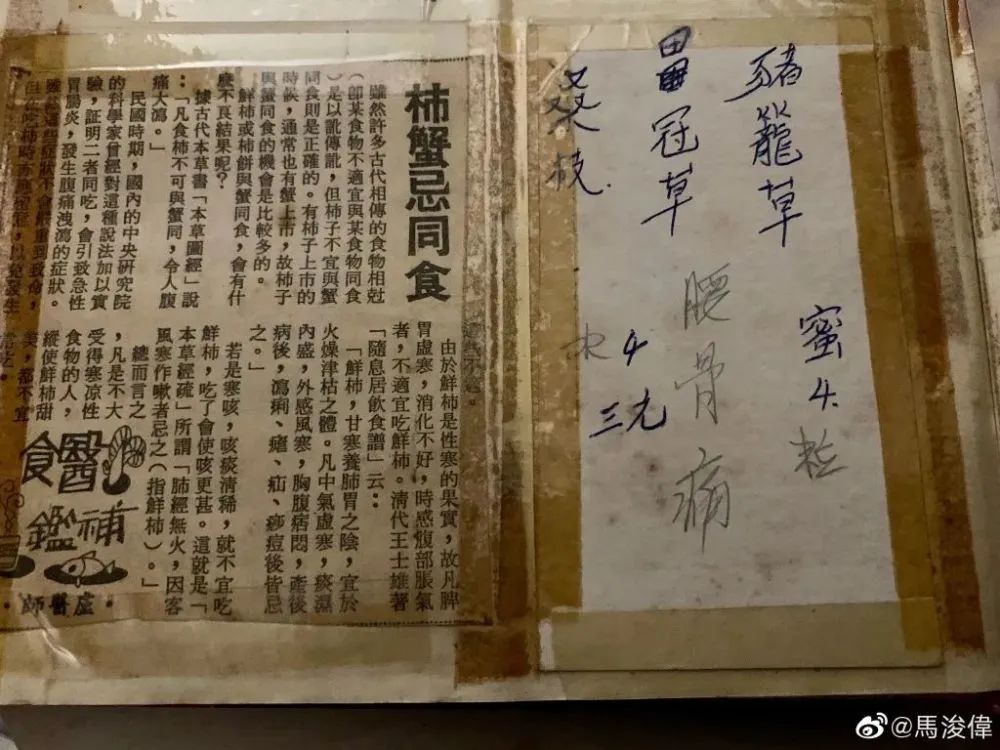 柿蟹忌同食
雖然許多古代相傳的食物相尅
(即某食物不適宜與某食物同食
)是以訛傳訛,但柿子不宜與蟹
同食則是正確的。有柿子上市的
時候,通常也有蟹上市,故柿子
與蟹同食的機會是比較多的。
鮮柿或柿餅與蟹同食,會有什
麼不良結果呢?
據古代本草書「本草圖經」說
:「凡食柿不可與蟹同,令人腹
痛大瀉。」
民國時期,國內的中央硏究院
的科學家曾經對這種說法加以實
驗,証明二者同吃,會引致急性
胃腸炎,發生腹痛洩瀉的症狀。
雖然這些症狀不會嚴重到致命,
柿時亦應,以免發生
由於鮮柿是性寒的果實,故凡脾
胃虛寒,消化不好,時感腹部脹氣
者,不適宜吃鮮柿。清代王士雄著
「隨息居飲食譜」云:
「鮮柿,甘寒養肺胃之陰,宜於
火燥津枯之體。凡中氣虛寒,痰濕
內盛,外感風寒,胸腹痞悶,產後
病後,瀉痢、瘧、疝、痧痘後皆忌
之。」
若是寒咳,咳痰清稀,就不宜吃
鮮柿,吃了會使咳更甚。這就是「
本草經疏」所謂「肺經無火,因客
風寒作嗽者忌之(指鮮柿)。」
總而言之
,凡是不大
受得寒凉性
食物的人,
縱使鮮柿甜
美,都不宜
食醫
補鑑
·盧醫師·
豬籠草
田冠草
枝
蜜4粒
腰骨痛
4
三九
@馬浚偉